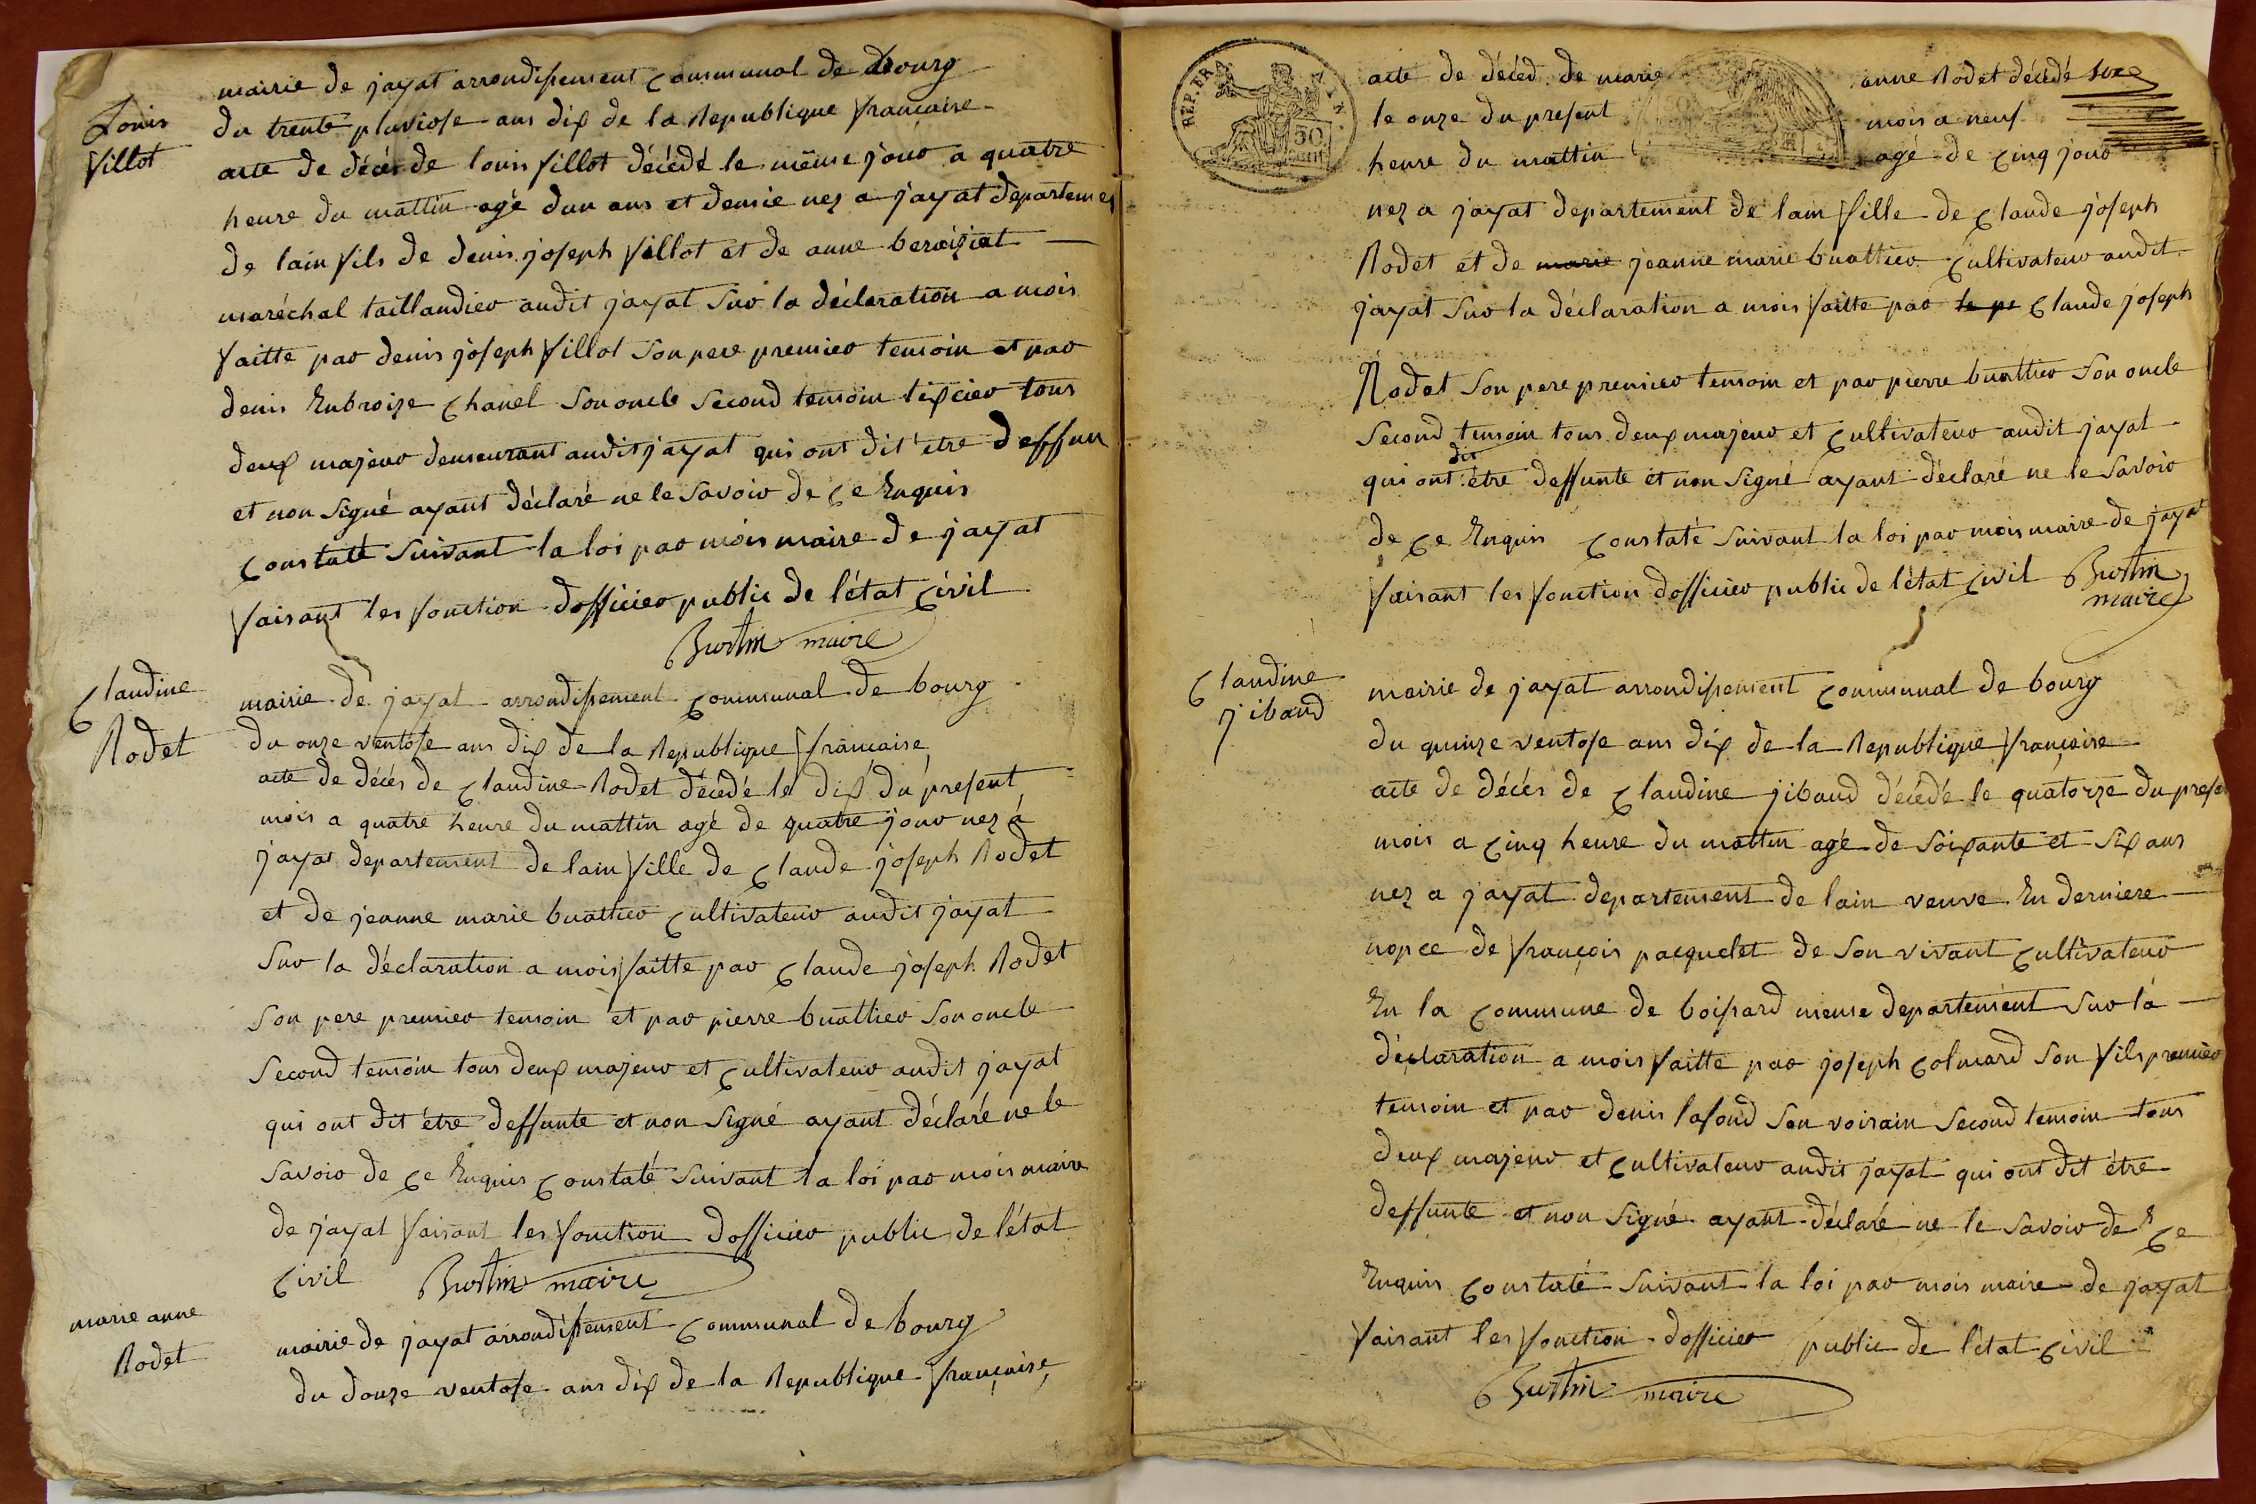 mairie de jayat arrondissement communal de Bourg
Louis
fillot
du trente pluviose ans dix de la Republique française
acte de décés de louis fillot décédé le même jour a quatre
heure du mattin agé dun ans et demie nez a jayat departemen
de lain fils de denis joseph fillot et de anne beraiziat
maréchal taillandier audit jayat sur la déclaration a mois
faitte par denis joseph fillot son pere premier temoin et par
denis Enbroize chanel son oncle second temoin tixcier tous
deux majeur demeurant audit jayat qui ont dit être deffun
et non signé ayant déclaré ne le savoir de ce Enquis
constaté suivant la loi par mois maire de jayat
faisant les fonction dofficier public de l'état civil
maire
Claudine
Rodet
mairie de jayat arrondissement communal de bourg
du onze ventose ans dix de la Republique française
acte de décés de Claudine Rodet décédé le dix du present
mois a quatre heure du mattin agé de quatre jour nez a
jayat departement de lain fille de Claude joseph Rodet
et de jeanne marie buattier cultivateur audit jayat
sur la déclaration a mois faitte par Claude joseph Rodet
son pere premier temoin et par pierre buattier son oncle
second temoin tous deux majeur et cultivateur audit jayat
qui ont dit être deffunte et non signé ayant déclaré ne le
savoir de ce Enquis constaté suivant la loi par mois maire
de jayat faisant les fonction dofficier public de l'état
civil maire
marie anne
Rodet
mairie de jayat arrondissement communal de bourg
du douze ventose ans dix de la Republique française
REP. FRA
50
cent
acte de décéd de marie anne Rodet décédé
le onze du present mois a neuf
heure du mattin agé de cinq jour
nez a jayat departement de lain fille de Claude joseph
Rodet et de marie jeanne marie buattier cultivateur audit
jayat sur la déclaration a mois faitte par le pe Claude joseph
Rodet son pere premier temoin et par pierre buattier son oncle
second temoin tous deux majeur et cultivateur audit jayat
dit
qui ont être deffunte et non signé ayant déclaré ne le savoir
de ce Enquis constaté suivant la loi par mois maire de jayat
faisant les fonction dofficier public de l'état civil
maire
Claudine
jibaud
mairie de jayat arrondissement communal de bourg
du quinze ventose ans dix de la Republique française
acte de décés de Claudine jibaud décédé le quatorze du prese
mois a cinq heure du mattin agé de soixante et six ans
nez a jayat departement de lain veuve En derniere
nopce de françois pacquelet de son vivant cultivateur
En la commune de boissard meme departement sur la
déclaration a mois faitte par joseph colmard son fils premier
temoin et par denis lafond son voirain second temoin tous
deux majeur et cultivateur audit jayat qui ont dit être
deffunte et non signé ayant déclaré ne le savoir de ce
Enquis constaté suivant la loi par mois maire de jayat
faisant les fonction dofficier public de l'état civil
maire